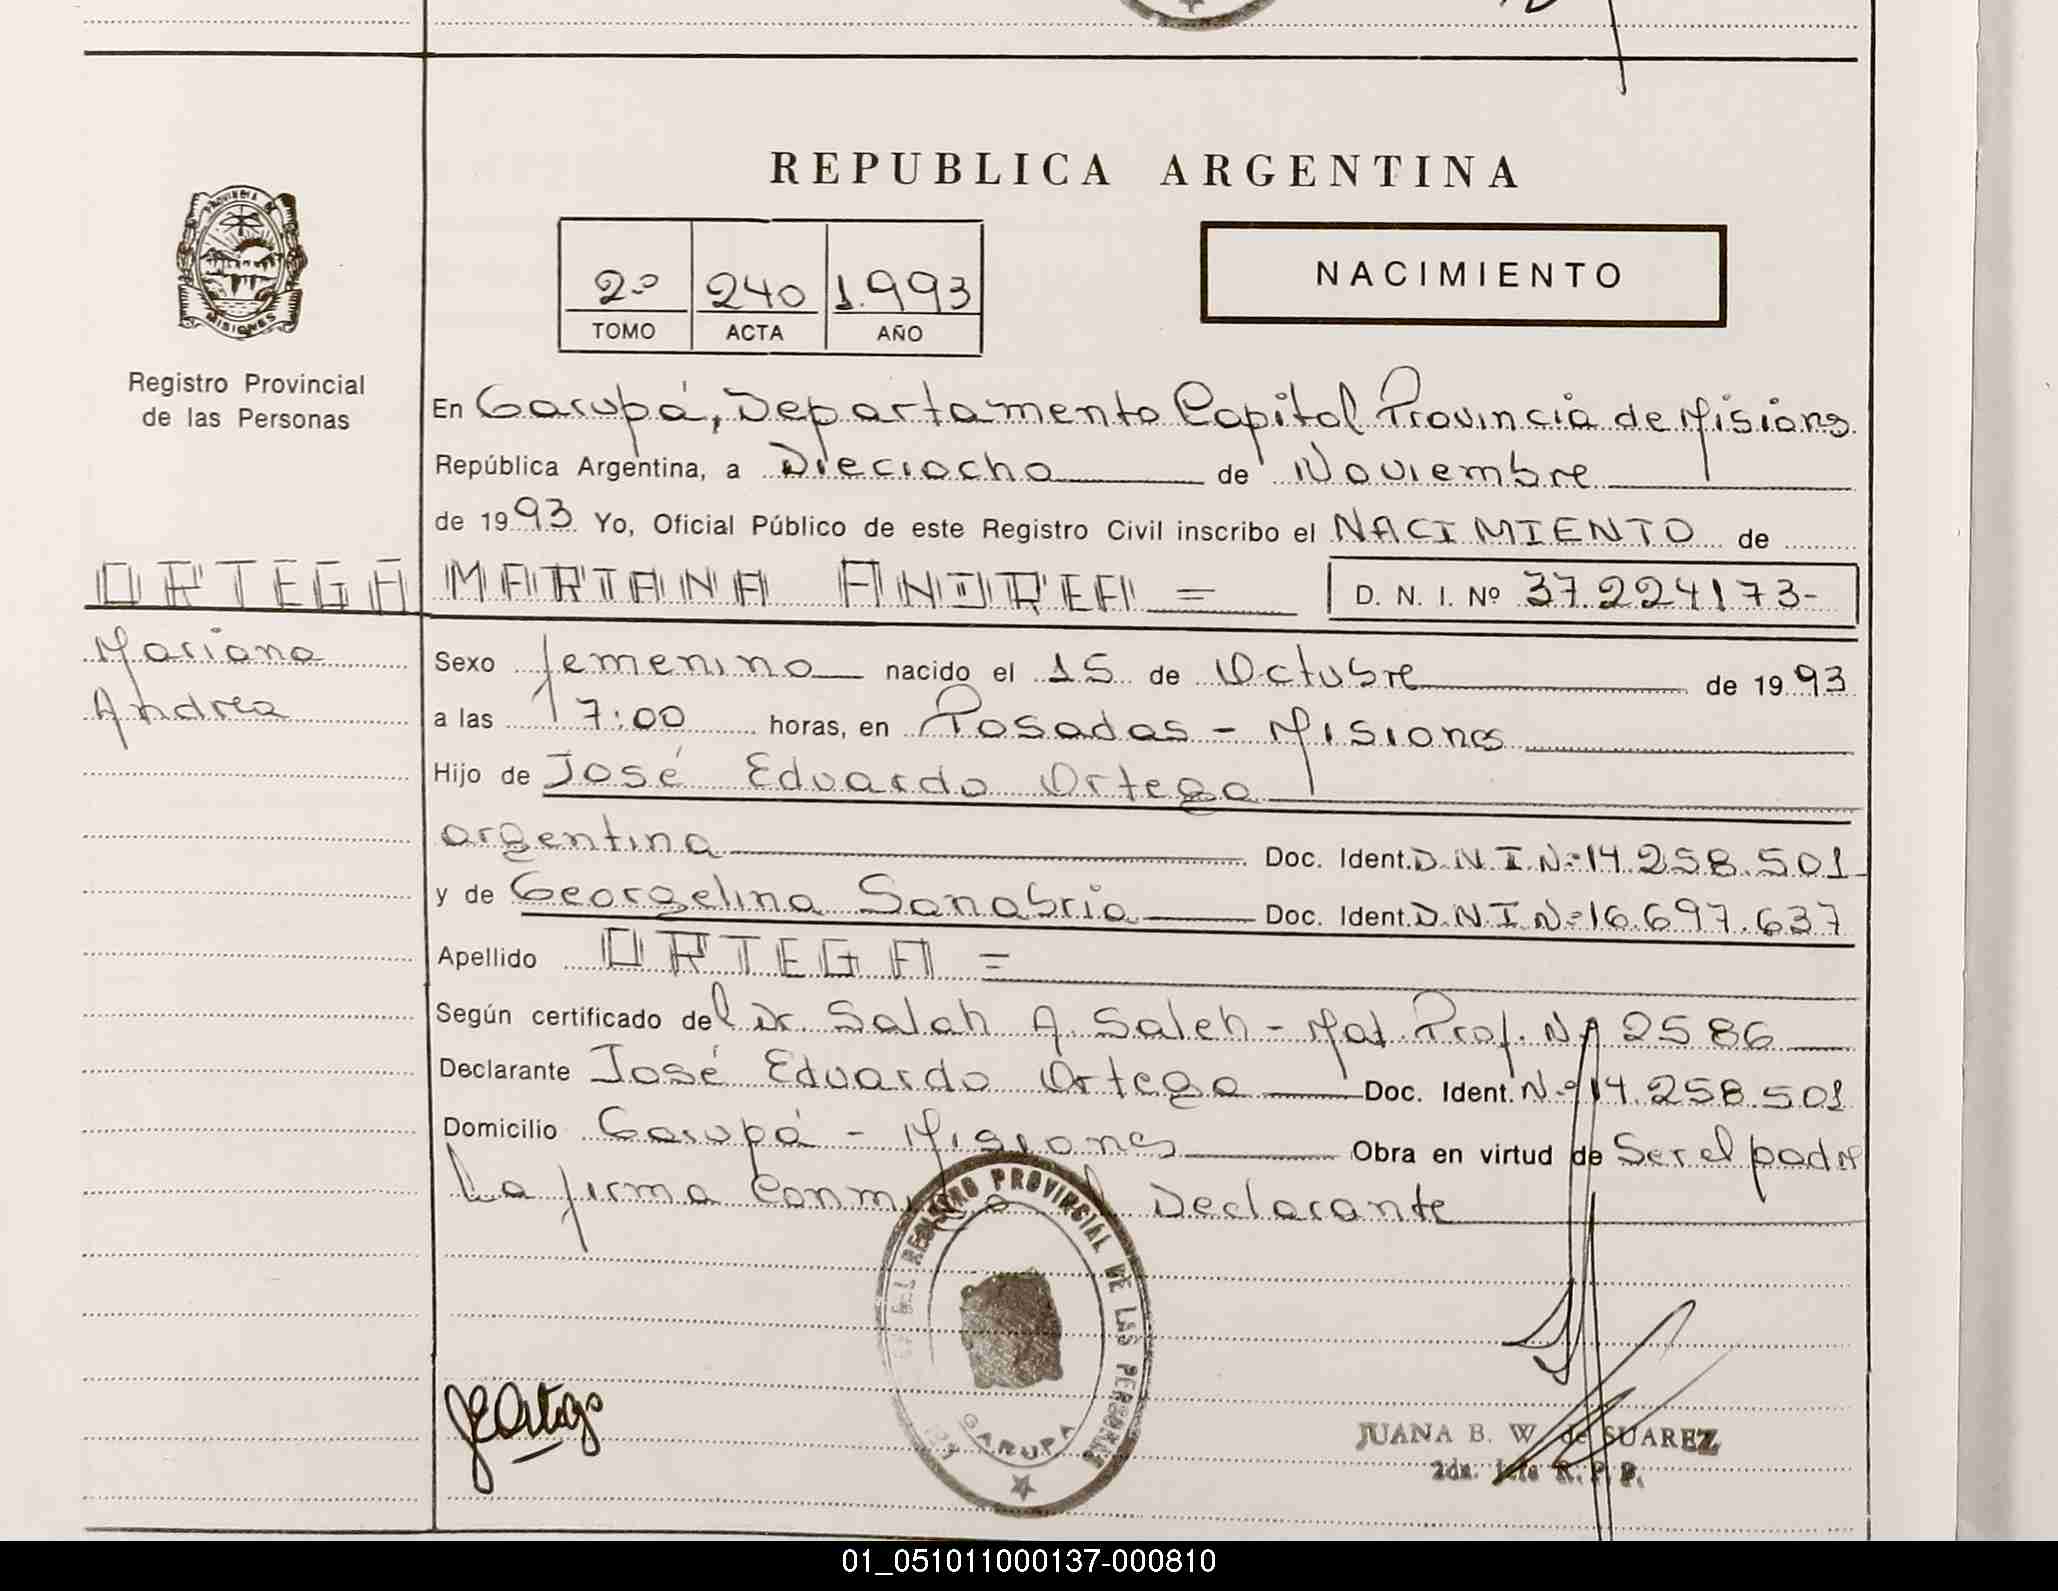 PROVINCIA DE
MISIONES
Registro Provincial
de las Personas
REPUBLICA ARGENTINA
2º 240 1.993
TOMO ACTA AÑO
NACIMIENTO
En Garupá, Departamento Capital Provincia de Misiones.
República Argentina, a Dieciocho de Noviembre
de 1993. Yo, Oficial Público de este Registro Civil inscribo el NACIMIENTO de
ORTEGA MARIANA ANDREA = D. N. I. Nº 37.224173-
Mariana
Andrea
Sexo femenino nacido el 15 de Octubre de 1993
a las 17:00 horas, en Posadas - Misiones
Hijo de José Eduardo Ortega
argentina Doc. Ident. D.N.I.Nº 14.258.501
y de Georgelina Sanabria Doc. Ident. D.N.I.Nº 16.697.637
Apellido ORTEGA =
Según certificado del Dr. Salah A. Saleh - Mat. Prof. Nº 2586
Declarante José Eduardo Ortega Doc. Ident. Nº 14.258.501
Domicilio Garupá - Misiones Obra en virtud de Ser el padre
La firma Conmigo el Declarante
REGISTRO PROVINCIAL DE LAS PERSONAS
GARUPA
JEOrtega
JUANA B. W. de SUAREZ
2da. Jefa R. P. P.
01_051011000137-000810